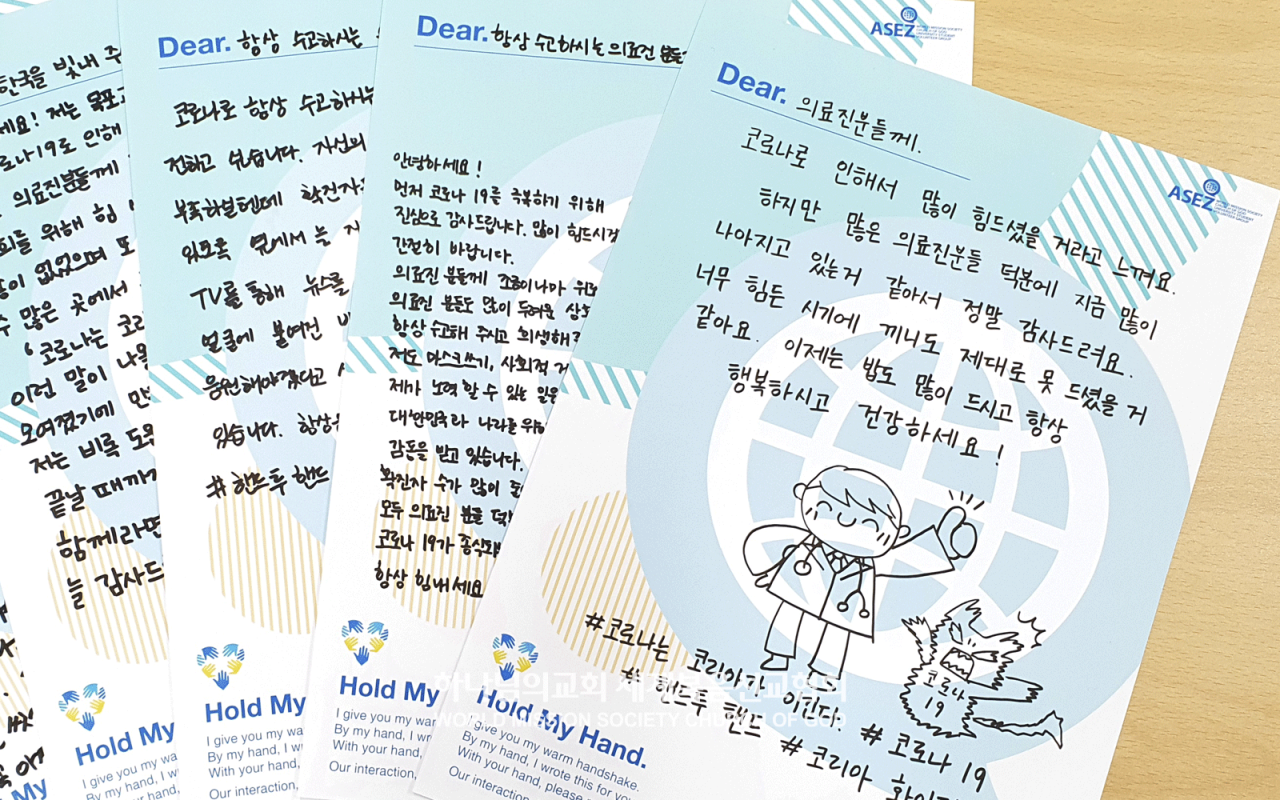 한국을 빛내 주
세요! 저는 목포
로나19로 인해
의료진분들께
회를 위해 힘
많은 곳에서
'코로나는 코리
이런 말이 나올
모여졌기에
저는 비록
끝날 때까지
함께라면
늘 감사드
Hold My
I give you my wa
By my hand, I wr
With your hand,
Dear. 항상 수고하시는
코로나로 항상 수고하시는
전하고 싶습니다. 자신의
부족하실텐데 확진자
있도록 옆에서
TV를 통해 뉴스를
얼굴에 붙여진
응원해야겠다고
있습니다. 항상
#핸드투핸드
Hold My
I give you my wa
By my hand, I w
With your hand,
Our interaction,
Dear. 항상 수고하시는 의료진 분들
안녕하세요!
먼저 코로나 19를 극복하기 위해
진심으로 감사드립니다. 많이 힘드시겠
간절히 바랍니다.
의료진 분들께 조금이나마 위로
의료진 분들도 많이 두려운 상
항상 수고해 주시고 희생해
저도 마스크쓰기, 사회적 거
제가 노력 할 수 있는 일을
대한민국과 나라를 위해
감동을 받고 있습니다.
확진자 수가 많이
모두 의료진 분들 덕
코로나 19가 종식되
항상 힘내세요
Hold My
I give you my war
By my hand, I wr
With your hand,
Our interaction,
ASEZ
Dear. 의료진분들께.
ASEZ
코로나로 인해서 많이 힘드셨을 거라고 느껴요.
하지만 많은 의료진분들 덕분에 지금 많이
나아지고 있는거 같아서 정말 감사드려요.
너무 힘든 시기에 끼니도 제대로 못 드셨을 거
같아요. 이제는 밥도 많이 드시고 항상
행복하시고 건강하세요!
코로나
19
#코로나는 코리아가 이긴다. #코로나 19
#핸드투핸드 #코리아
Hold My Hand.
I give you my warm handshake.
By my hand, I wrote this for you
With your hand, please
Our interaction
하나님의교회 세계복음선교협회
WORLD MISSION SOCIETY CHURCH OF GOD